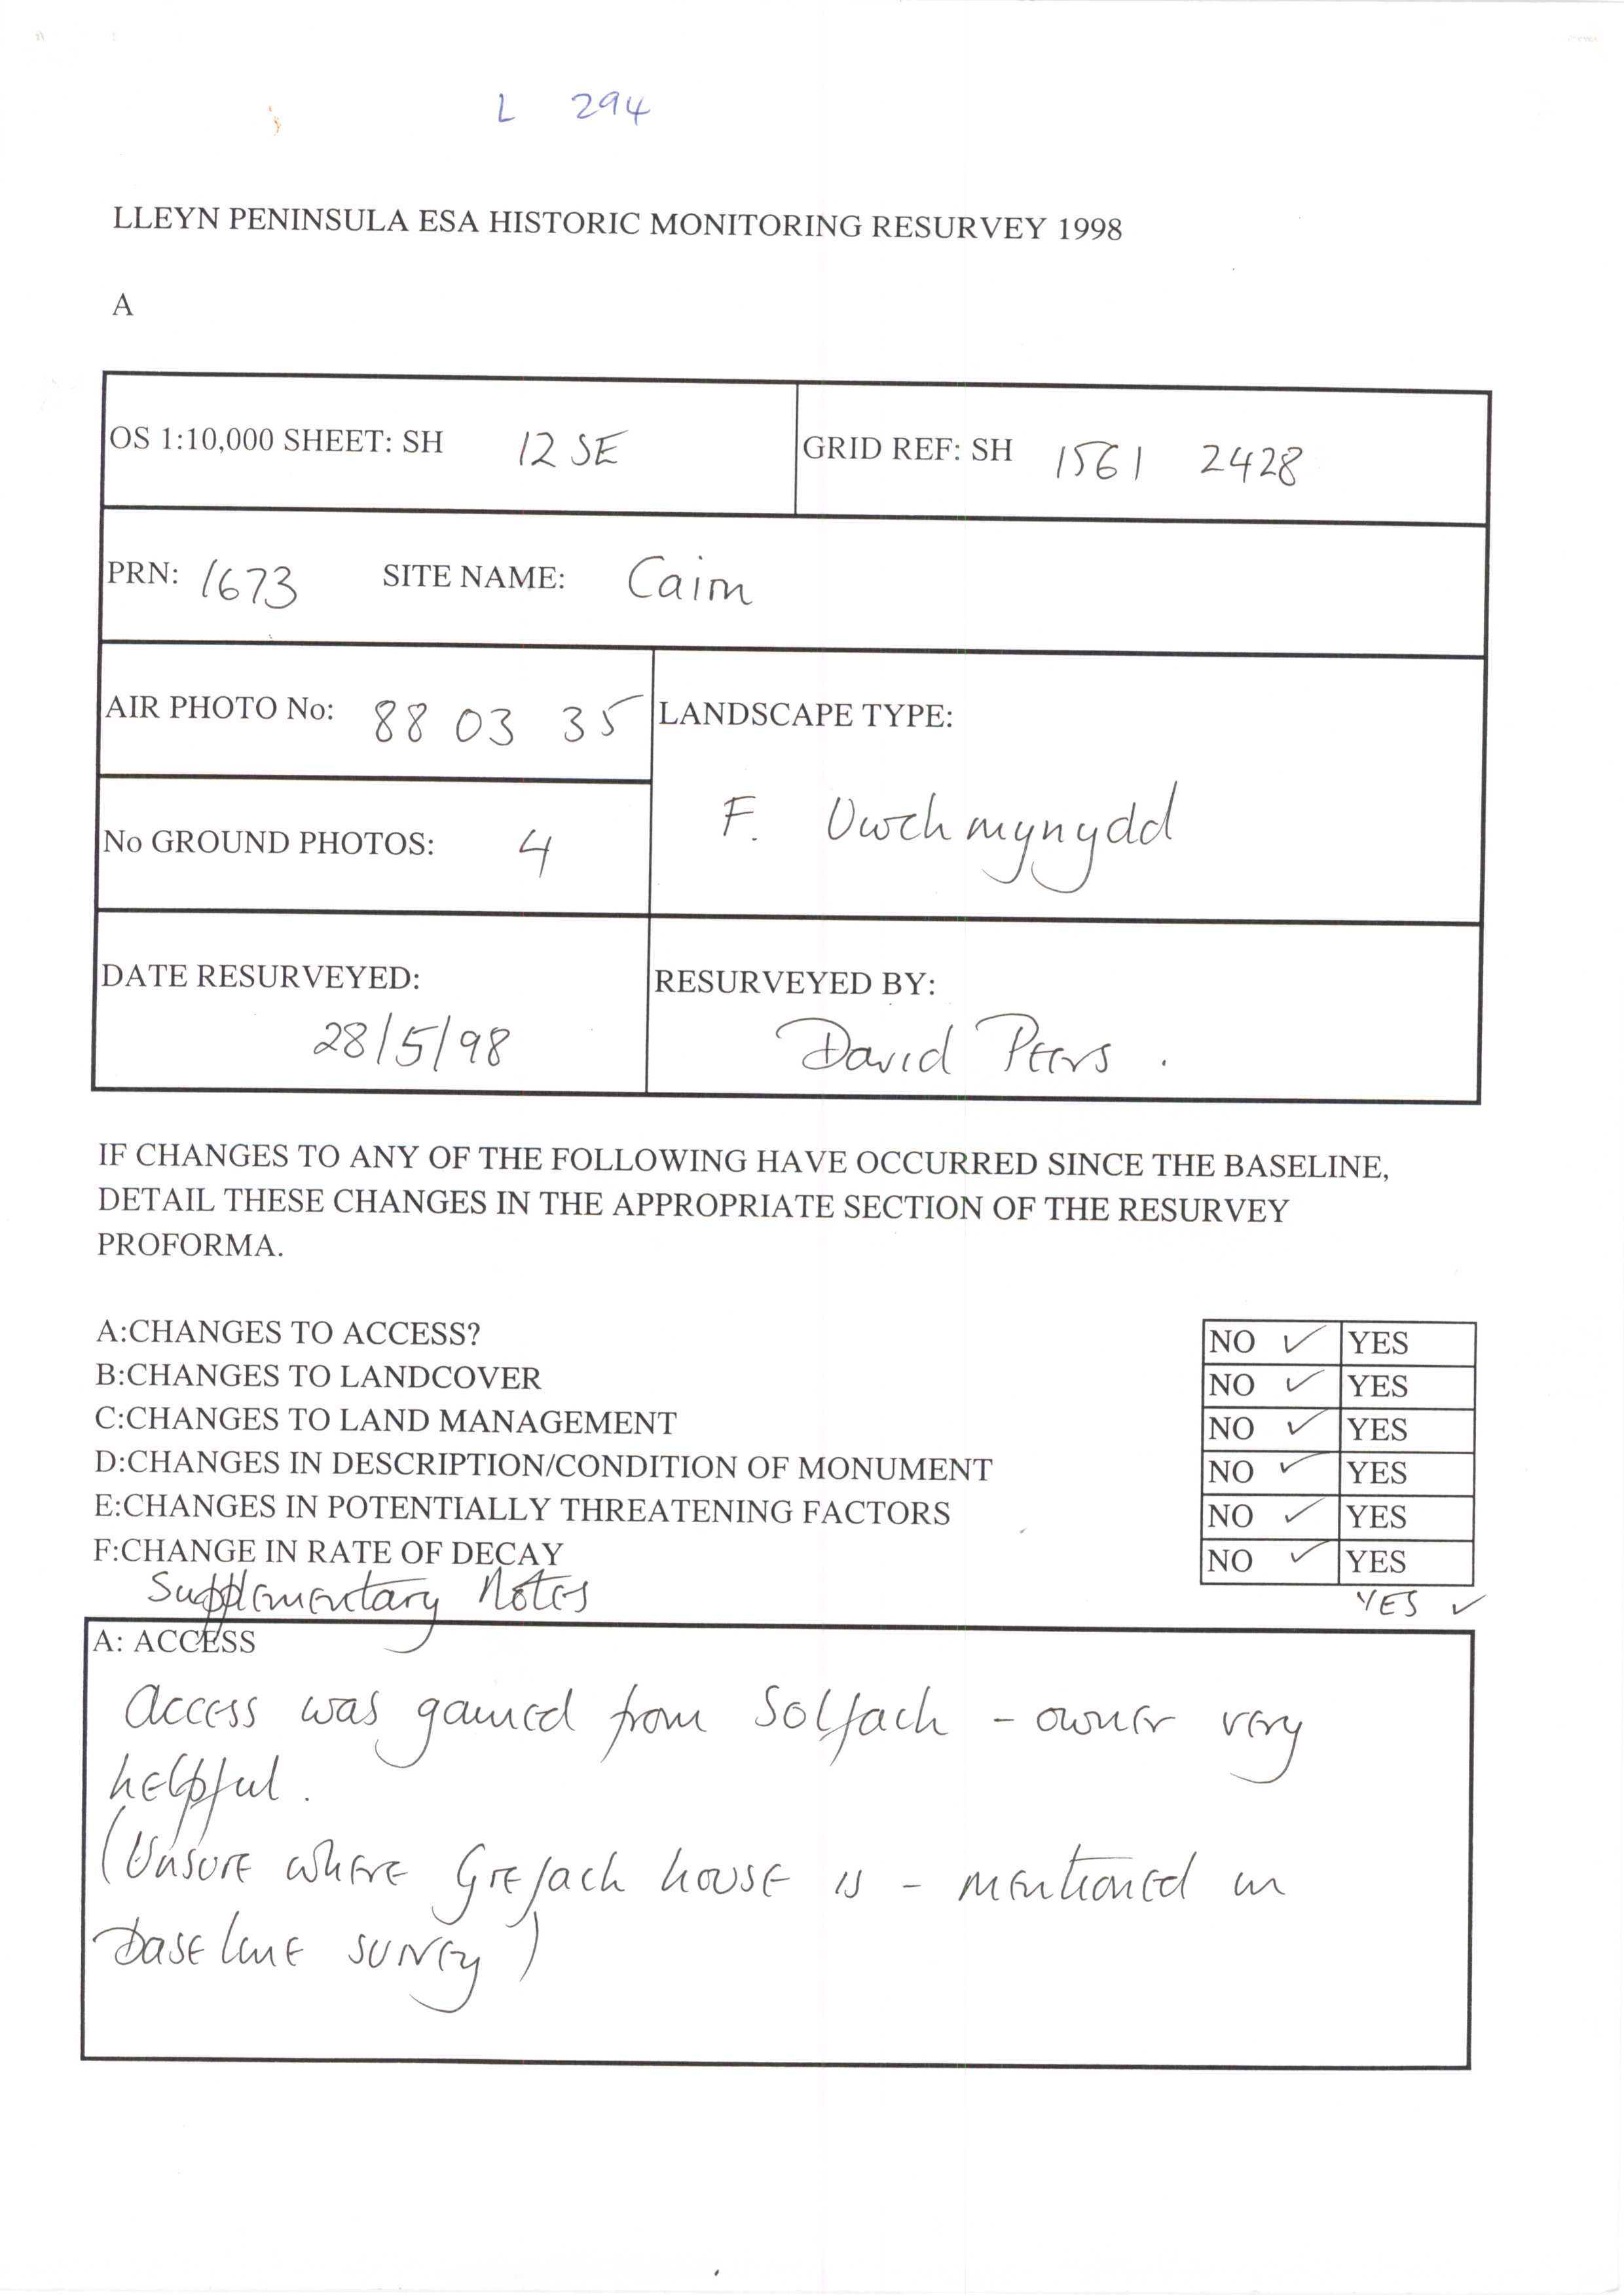 L 294
LLEYN PENINSULA ESA HISTORIC MONITORING RESURVEY 1998
A
OS 1:10,000 SHEET: SH 12 SE
GRID REF: SH 1561 2428
PRN: 1673 SITE NAME: Cairn
AIR PHOTO No: 88 03 35
LANDSCAPE TYPE:
F. Uwchmynydd
No GROUND PHOTOS: 4
DATE RESURVEYED:
28/5/98
RESURVEYED BY:
David Peers.
IF CHANGES TO ANY OF THE FOLLOWING HAVE OCCURRED SINCE THE BASELINE,
DETAIL THESE CHANGES IN THE APPROPRIATE SECTION OF THE RESURVEY
PROFORMA.
A:CHANGES TO ACCESS? NO ✓ YES
B:CHANGES TO LANDCOVER NO ✓ YES
C:CHANGES TO LAND MANAGEMENT NO ✓ YES
D:CHANGES IN DESCRIPTION/CONDITION OF MONUMENT NO ✓ YES
E:CHANGES IN POTENTIALLY THREATENING FACTORS NO ✓ YES
F:CHANGE IN RATE OF DECAY NO ✓ YES
Supplementary Notes YES ✓
A: ACCESS
Access was gained from Solfach - owner very
helpful.
(Unsure where Grefach house is - mentioned in
baseline survey)